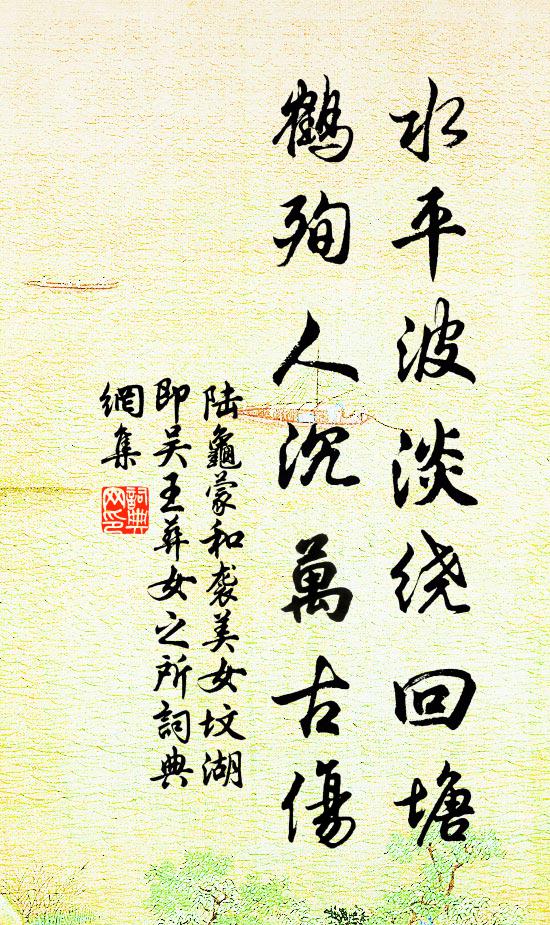 水平波淡绕回塘
鶴殉人沉萬古傷
陆龜蒙和袭美女坟湖
即吴王葬女之所詞典
網集
詞典
网印